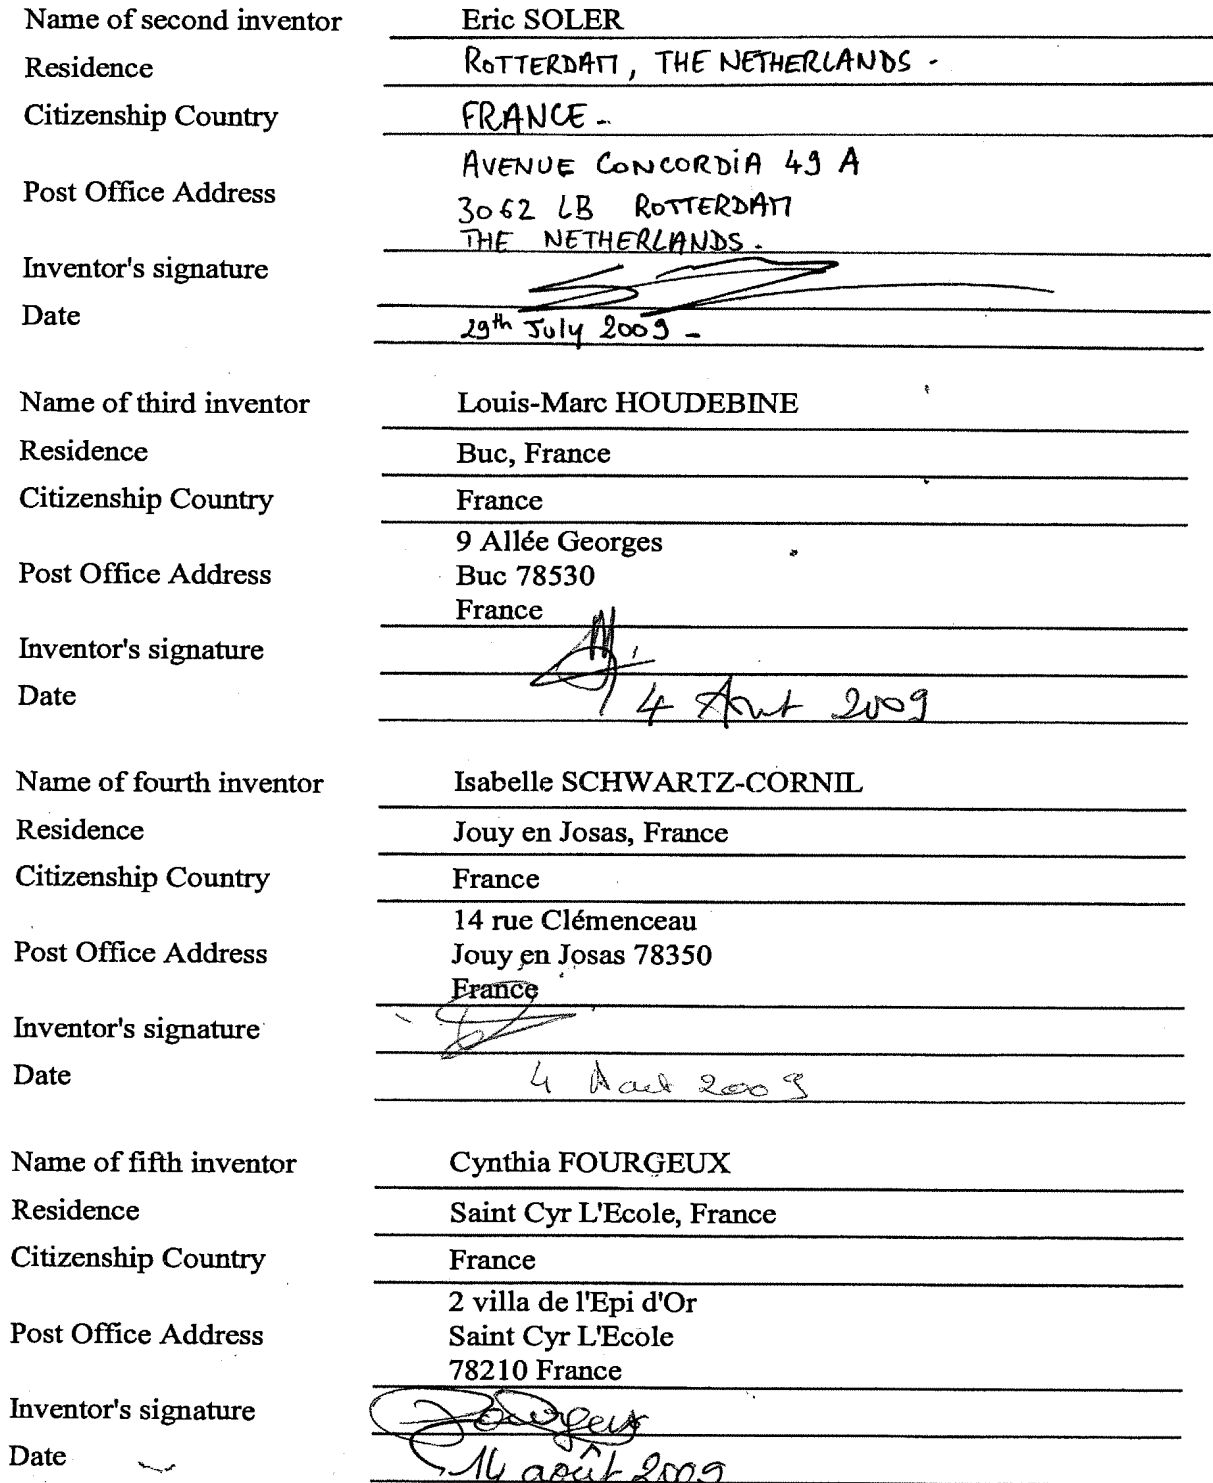 Name of second inventor Eric SOLER
Residence ROTTERDAM, THE NETHERLANDS -
Citizenship Country FRANCE -
AVENUE CONCORDIA 49 A
Post Office Address 3062 LB ROTTERDAM
THE NETHERLANDS.
Inventor's signature
Date 29th July 2009 -
Name of third inventor Louis-Marc HOUDEBINE
Residence Buc, France
Citizenship Country France
9 Allée Georges
Post Office Address Buc 78530
France
Inventor's signature
Date 4 Aout 2009
Name of fourth inventor Isabelle SCHWARTZ-CORNIL
Residence Jouy en Josas, France
Citizenship Country France
14 rue Clémenceau
Post Office Address Jouy en Josas 78350
France
Inventor's signature
Date 4 Aout 2009
Name of fifth inventor Cynthia FOURGEUX
Residence Saint Cyr L'Ecole, France
Citizenship Country France
2 villa de l'Epi d'Or
Post Office Address Saint Cyr L'Ecole
78210 France
Inventor's signature Fourgeux
Date 14 août 2009